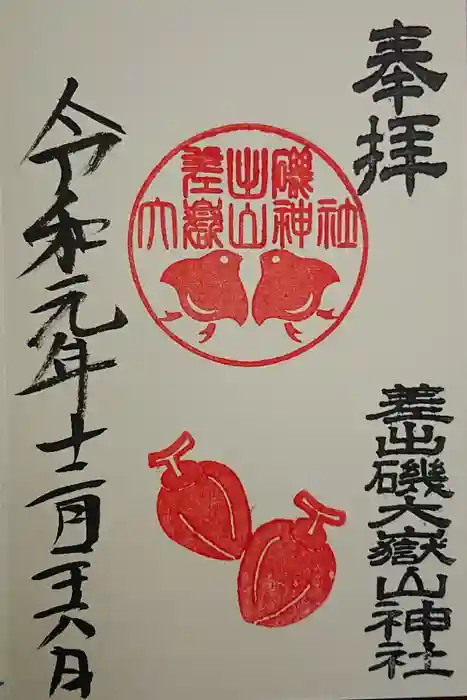 奉拝
差出磯大嶽山神社
差出磯
大嶽山神社
令和元年十二月二十六日